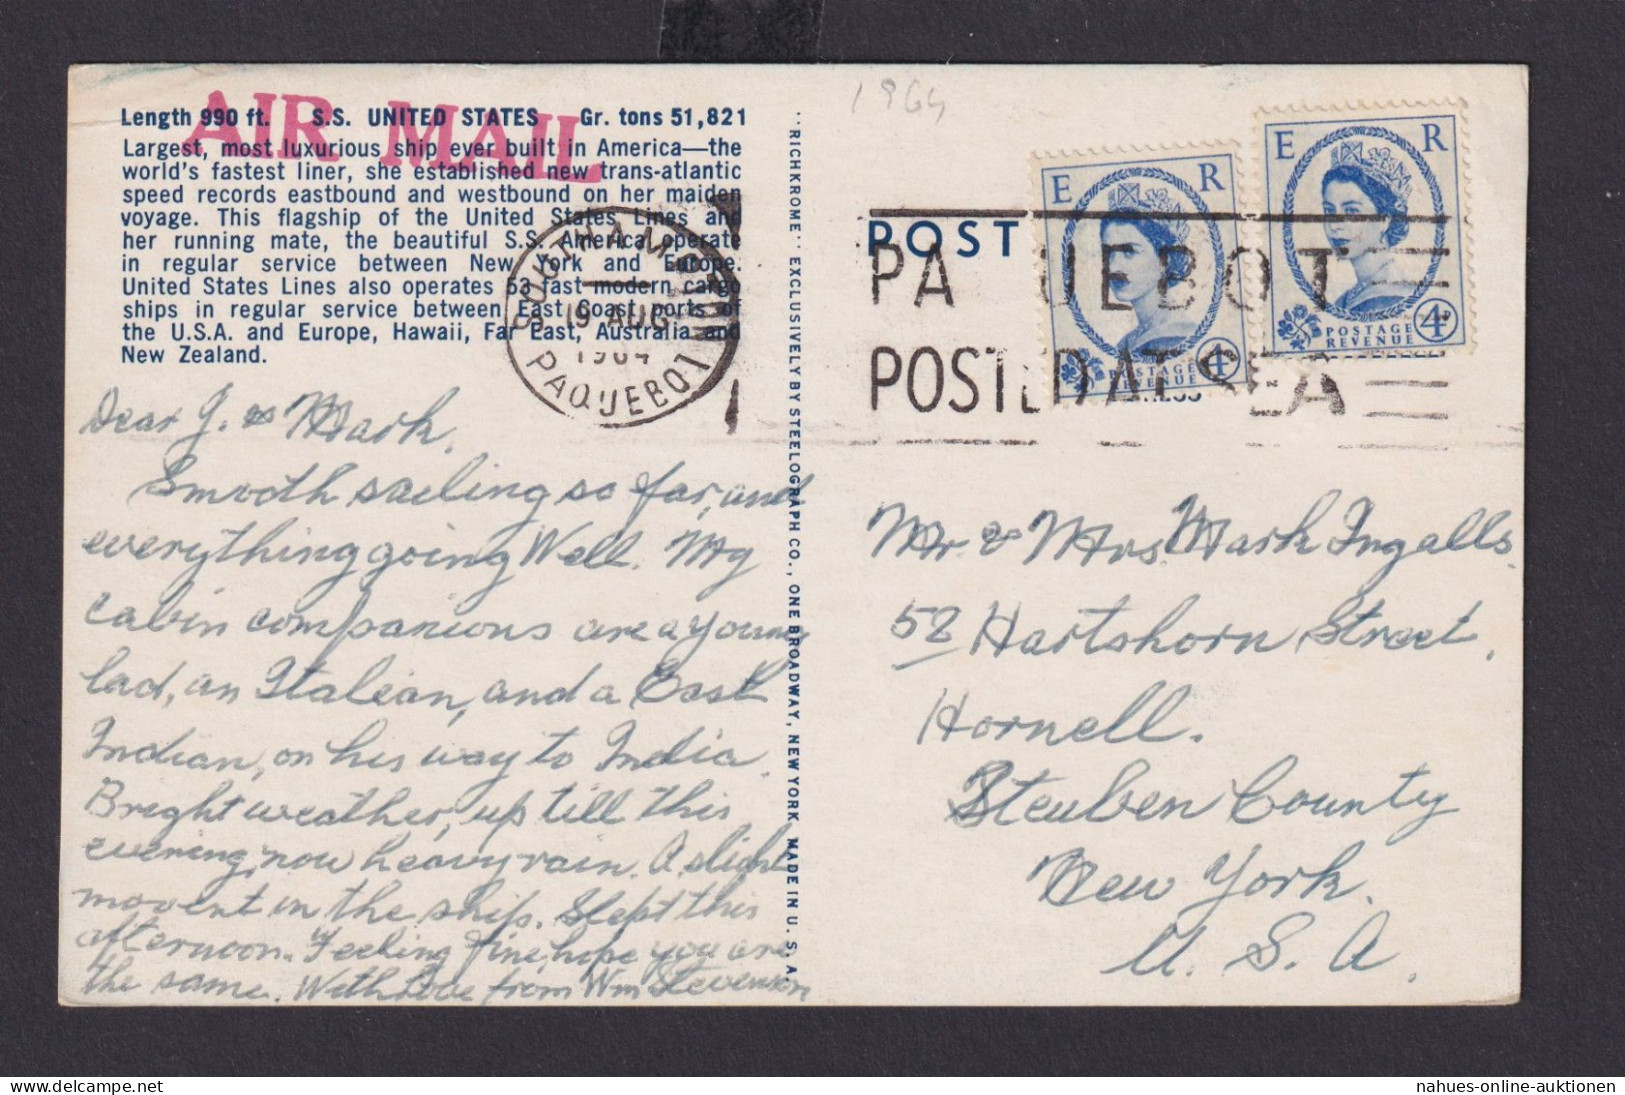 1964
AIR MAIL
Length 990 ft. S.S. UNITED STATES Gr. tons 51,821
Largest, most luxurious ship ever built in America—the
world's fastest liner, she established new trans-atlantic
speed records eastbound and westbound on her maiden
voyage. This flagship of the United States Lines and
her running mate, the beautiful S.S. America operate
in regular service between New York and Europe.
United States Lines also operates 53 fast modern cargo
ships in regular service between East Coast ports of
the U.S.A. and Europe, Hawaii, Far East, Australia and
New Zealand.
SOUTHAMPTON
19 AUG
1964
PAQUEBOT
Dear J. & Mark,
Smooth sailing so far, and
everything going Well. My
cabin companions are a young
lad, an Italian, and a East
Indian, on his way to India.
Bright weather, up till this
evening, now heavy rain. A slight
movent in the ship. Slept this
afternoon. Feeling fine, hope you are
the same. With Love from Wm Stevenson
"RICHKROME" EXCLUSIVELY BY STEELOGRAPH CO., ONE BROADWAY, NEW YORK MADE IN U. S. A.
POST
PAQUEBOT
POSTED AT SEA
E R
POSTAGE
REVENUE
4D
E R
POSTAGE
REVENUE
4D
Mr. & Mrs. Mark Ingalls.
52 Hartshorn Street,
Hornell.
Steuben County
New York.
U. S. A.
nahues-online-auktionen
delcampe.net
nahues-online-auktionen